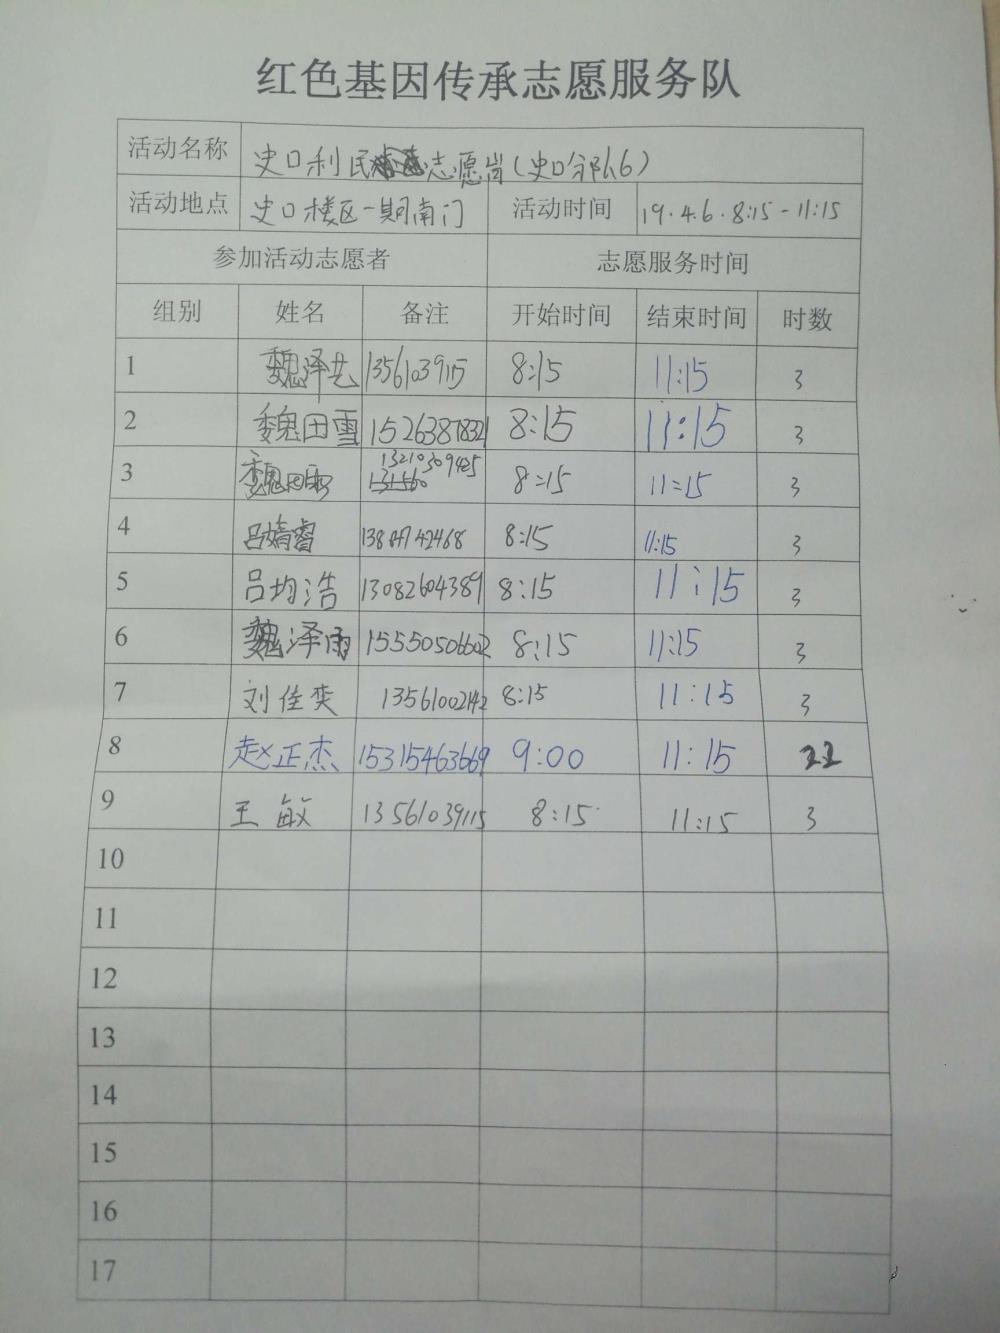 红色基因传承志愿服务队
活动名称 史口利民志愿岗(史口分队6)
活动地点 史口楼区一期南门 活动时间 19.4.6.8:15-11:15
参加活动志愿者 志愿服务时间
组别 姓名 备注 开始时间 结束时间 时数
1 魏泽艺 8:15 11:15 3
2 魏田雪 15263878321 8:15 11:15 3
3 13210309425 8:15 11:15 3
4 吕婧睿 8:15 11:15 3
5 吕均浩 13082604389 8:15 11:15 3
6 魏泽雨 15550506602 8:15 11:15 3
7 刘佳奕 13561002142 8:15 11:15 3
8 赵正杰 15315463669 9:00 11:15 22
9 王敏 13561039115 8:15 11:15 3
10
11
12
13
14
15
16
17